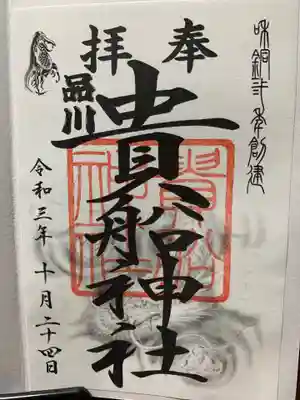 和銅弐年創建
奉拝
品川
貴船神社
貴船神社
令和三年 十月二十四日